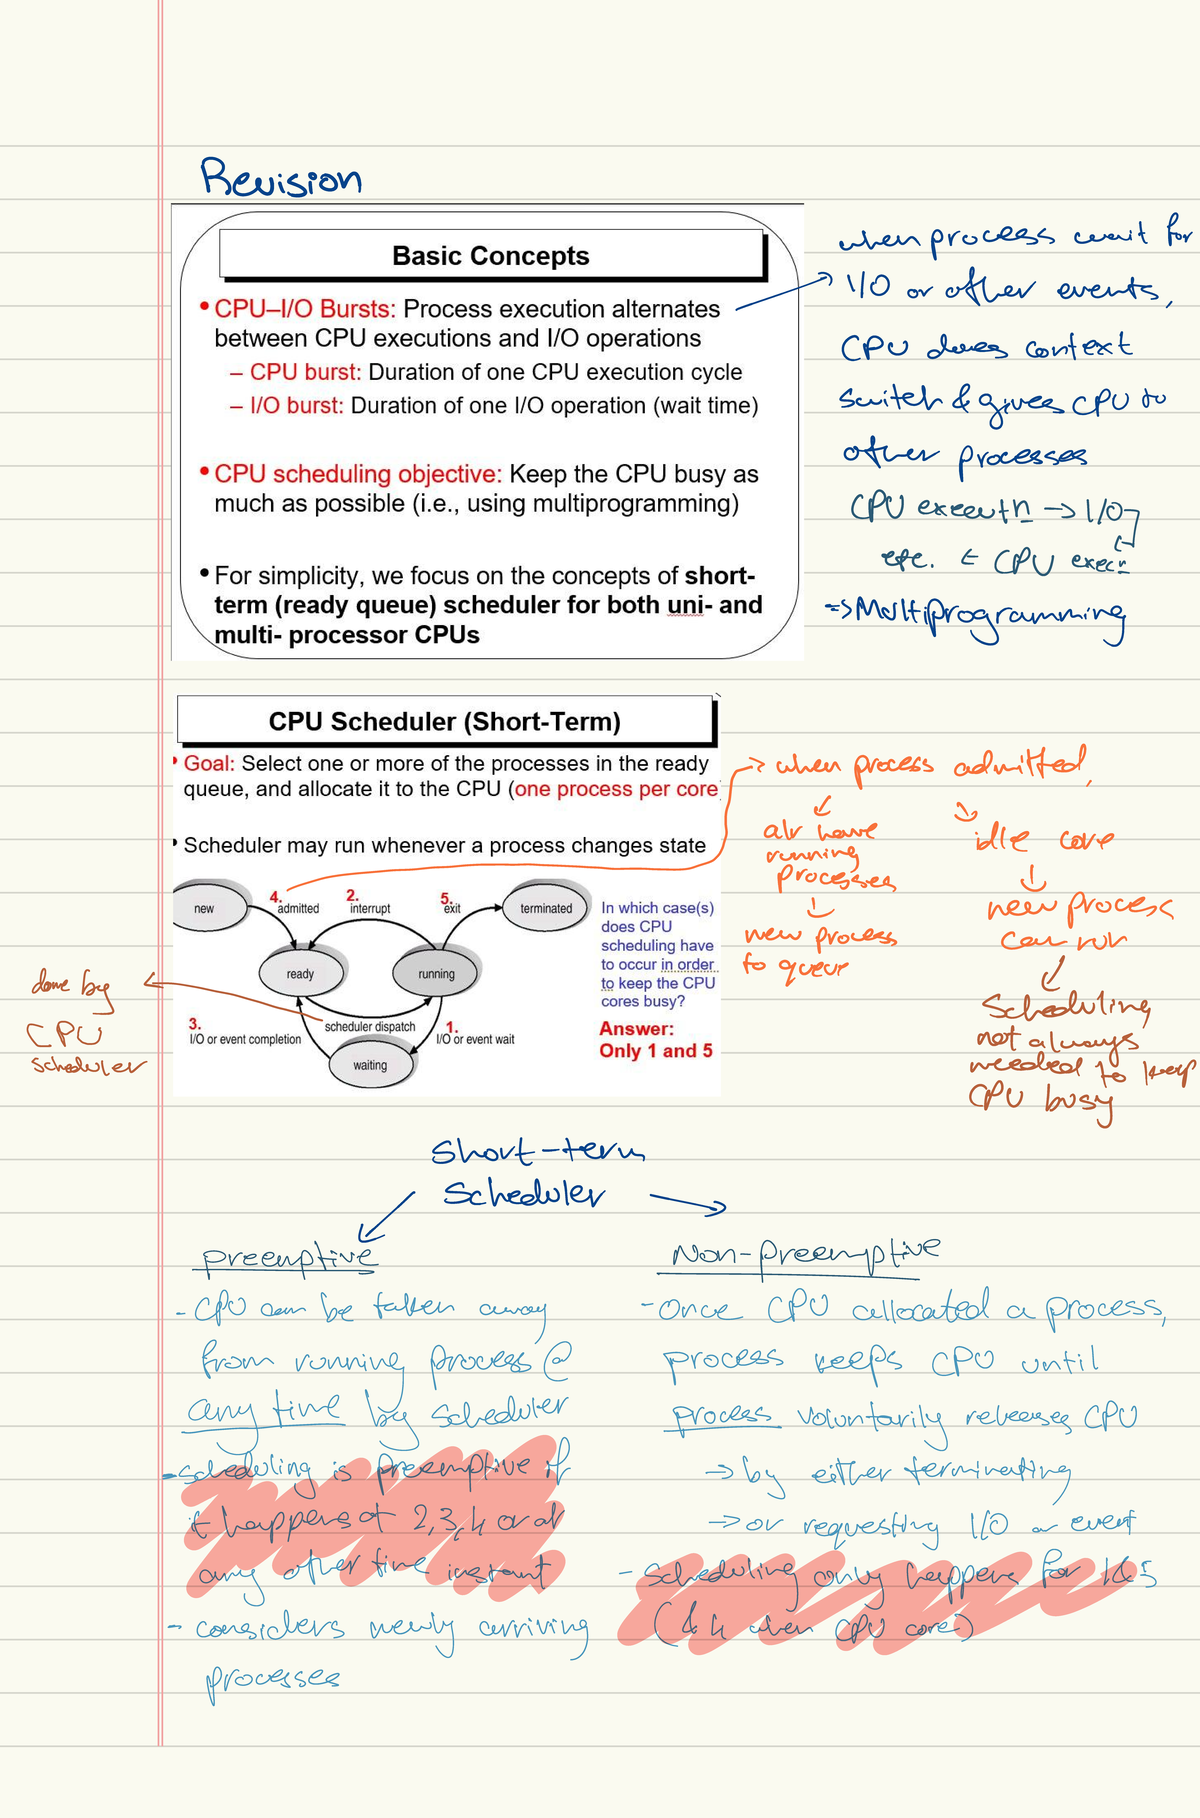 Revision
Basic Concepts
• CPU–I/O Bursts: Process execution alternates
between CPU executions and I/O operations
– CPU burst: Duration of one CPU execution cycle
– I/O burst: Duration of one I/O operation (wait time)
• CPU scheduling objective: Keep the CPU busy as
much as possible (i.e., using multiprogramming)
• For simplicity, we focus on the concepts of short-
term (ready queue) scheduler for both uni- and
multi- processor CPUs
when process wait for
→ I/O or other events,
CPU does context
switch & gives CPU to
other processes
CPU executn → I/O
etc. ← CPU execn
=> Multiprogramming
CPU Scheduler (Short-Term)
• Goal: Select one or more of the processes in the ready
queue, and allocate it to the CPU (one process per core
• Scheduler may run whenever a process changes state
new
4.
admitted
2.
interrupt
5.
exit
terminated
ready
running
3.
I/O or event completion
scheduler dispatch
1.
I/O or event wait
waiting
In which case(s)
does CPU
scheduling have
to occur in order
to keep the CPU
cores busy?
Answer:
Only 1 and 5
→ when process admitted,
alr have
running
processes
↓
new process
to queue
idle core
↓
new process
can run
Scheduling
not always
needed to keep
CPU busy
done by
CPU
scheduler
Short-term
Scheduler
Preemptive
- CPU can be taken away
from running process @
any time by scheduler
- scheduling is preemptive if
it happens at 2,3,4 or at
any other time instant
- considers newly arriving
processes
Non-preemptive
- Once CPU allocated a process,
process keeps CPU until
process voluntarily releases CPU
→ by either terminating
→ or requesting I/O or event
- scheduling only happens for 1&5
(& 4 when CPU core)